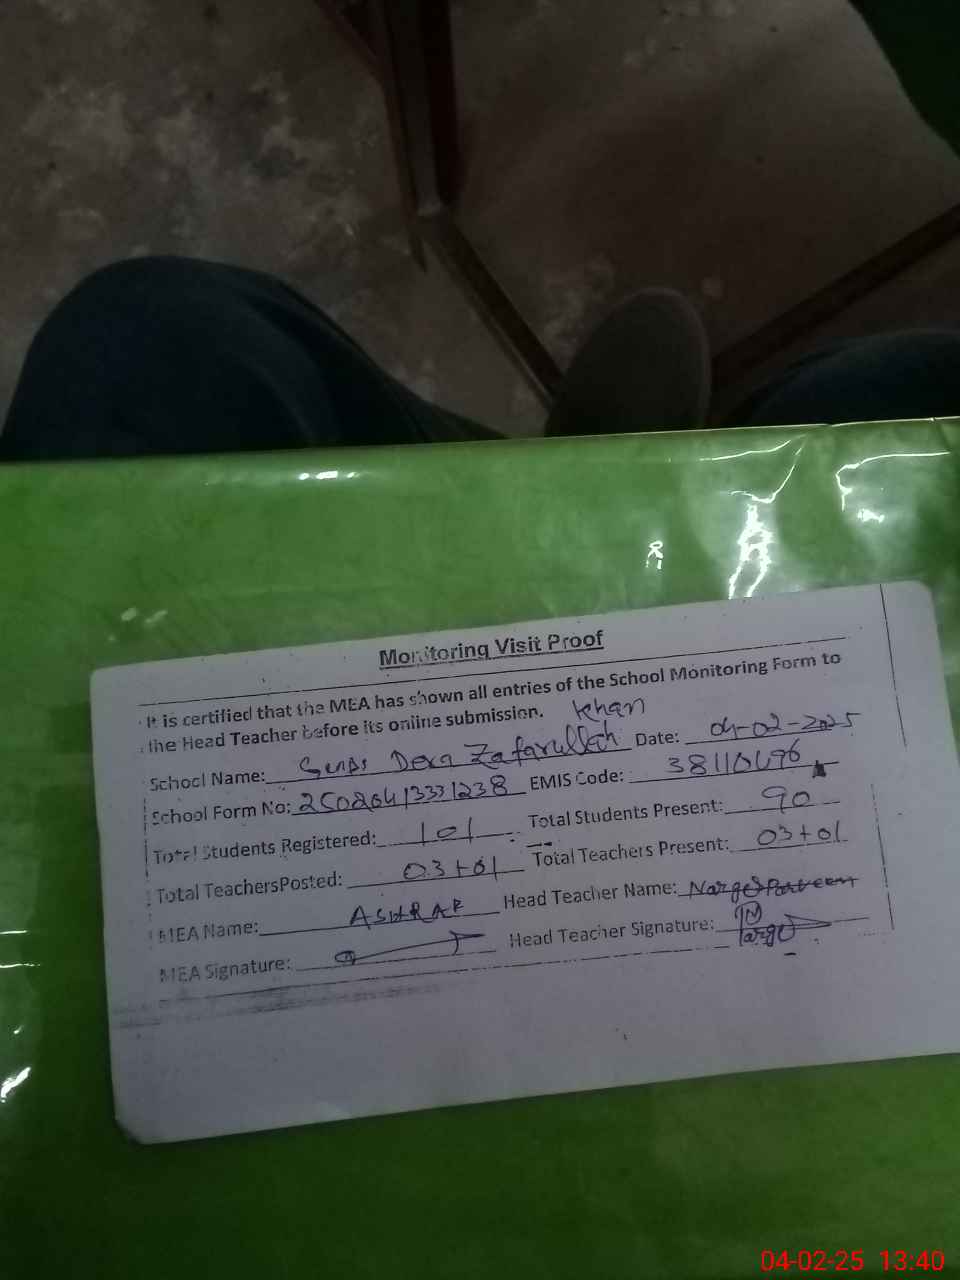 Monitoring Visit Proof
It is certified that the MEA has shown all entries of the School Monitoring Form to
the Head Teacher before its online submission.
School Name: Dera Zafarullah Khan Date: 04-02-2025
School Form No: EMIS Code:
Total Students Registered: 101 Total Students Present: 90
Total TeachersPosted: 03+01 Total Teachers Present: 03+01
MEA Name: ASHRAF Head Teacher Name: Narges Parveen
MEA Signature: Head Teacher Signature:
04-02-25 13:40